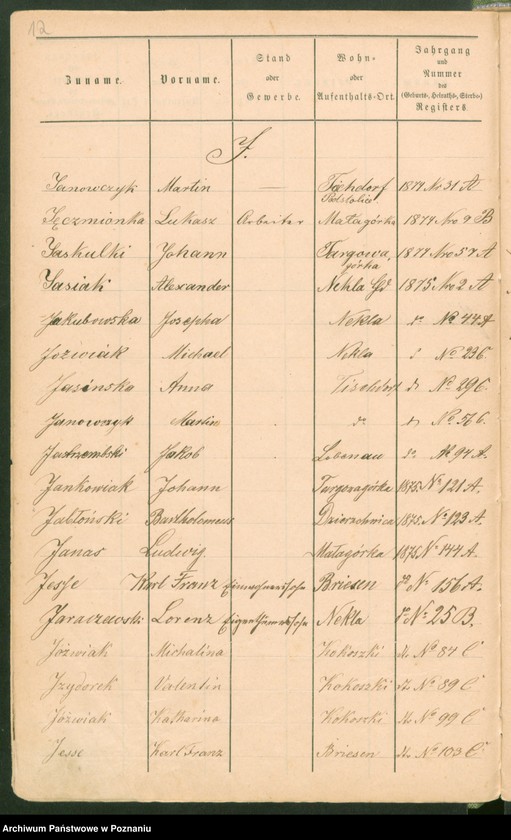 12
Zuname. Vorname. Stand oder Gewerbe. Wohn- oder Aufenthalts-Ort. Jahrgang und Nummer des (Geburts-, Heiraths-, Sterbe-) Registers.
J.
Janowczyk Martin — 1874 No 31 A
Jęczmionka Lukasz Arbeiter Małagórka 1874 Nro 9 B
Jaskulki Johann Targowa górka 1874 Nro 57 A
Jasiak Alexander Nekla 1875 No 2 A
Jakubowska Josepha Nekla do No 44 A
Joźwiak Michael Nekla No 23 C.
Jasinska Anna do No 29 C.
Janowczyk Martin do do No 56 C.
Jastrzembski Jakob Libenau do No 94 A.
Jankowiak Johann Targowagórka 1875 No 121 A.
Jabłoński Bartholomeus Dzierzchnica 1875 No 123 A.
Janas Ludwig Małagórka 1875 No 144 A.
Jesse Karl Franz Einwohnersohn Briesen do No 156 A.
Jaraczewski Lorenz Eigenthümersohn Nekla do No 25 B.
Jóźwiak Michalina Kokoszki do No 84 C
Jzydorek Valentin Kokoszki do No 89 C
Jóźwiak Katharina Kokoszki do No 99 C
Jesse Karl Franz Briesen do No 103 C.
Archiwum Państwowe w Poznaniu